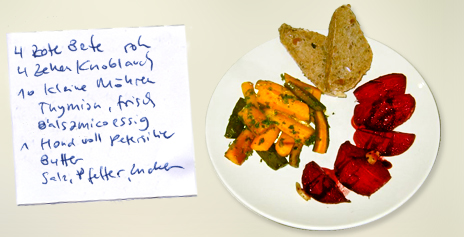 4 Rote Bete roh
4 Zehen Knoblauch
10 kleine Möhren
Thymian, frisch
Balsamicoessig
1 Hand voll Petersilie
Butter
Salz, Pfeffer, Zucker